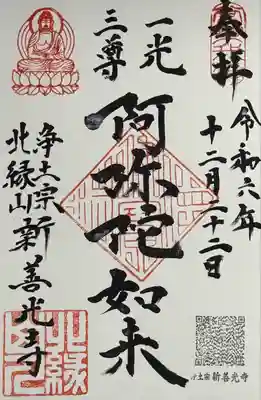 奉拝
令和六年
十二月二十二日
一光
三尊
阿弥陀如来
浄土宗
北縁山新善光寺
浄土宗 新善光寺